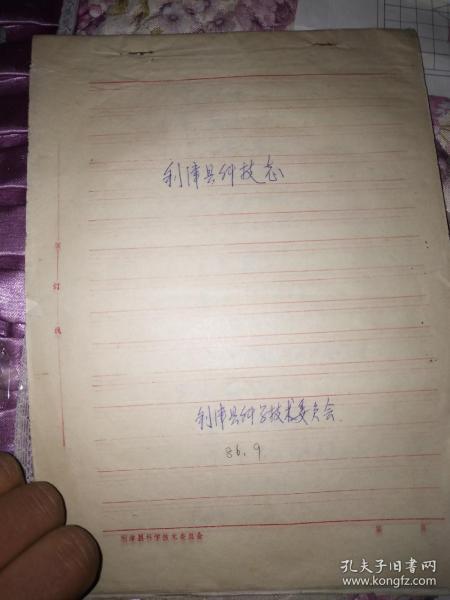 利津县科技志
装
订
线
利津县科学技术委员会
86.9
利津县科学技术委员会
第 页
孔夫子旧书网
www.kongfz.com